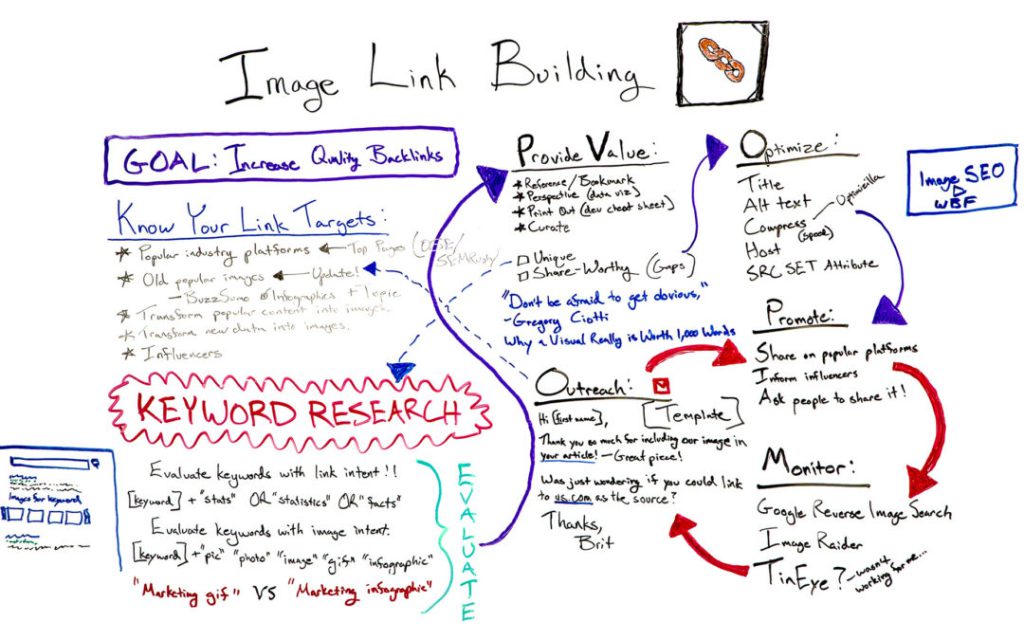 Image Link Building
GOAL: Increase Quality Backlinks
Know Your Link Targets:
* Popular industry platforms ← Top Pages (OSE/
SEMRush)
* Old popular images ← Update!
- BuzzSumo Infographics + Topic
* Transform popular content into images.
* Transform new data into images.
* Influencers
KEYWORD RESEARCH
Evaluate keywords with link intent!!
[keyword] + "stats" OR "statistics" OR "facts"
Evaluate keywords with image intent.
[keyword] + "pic" "photo" "image" "gif" "infographic"
"Marketing gif" VS "Marketing infographic"
EVALUATE
Images for keyword
Provide Value:
* Reference/Bookmark
* Perspective (data viz)
* Print Out (dev cheat sheet)
* Curate
□ Unique
□ Share-Worthy (Gaps)
"Don't be afraid to get obvious,"
- Gregory Ciotti
Why a Visual Really is Worth 1,000 Words
Outreach:
[Template]
Hi [first name],
Thank you so much for including our image in
your article! - Great piece!
Was just wondering if you could link
to us.com as the source?
Thanks,
Brit
Optimize:
Title
Alt text
Compress - Optimizilla
(speed)
Host
SRCSET Attribute
Image SEO
WBF
Promote:
Share on popular platforms
Inform influencers
Ask people to share it!
Monitor:
Google Reverse Image Search
Image Raider
TinEye? - wasn't
working for me...